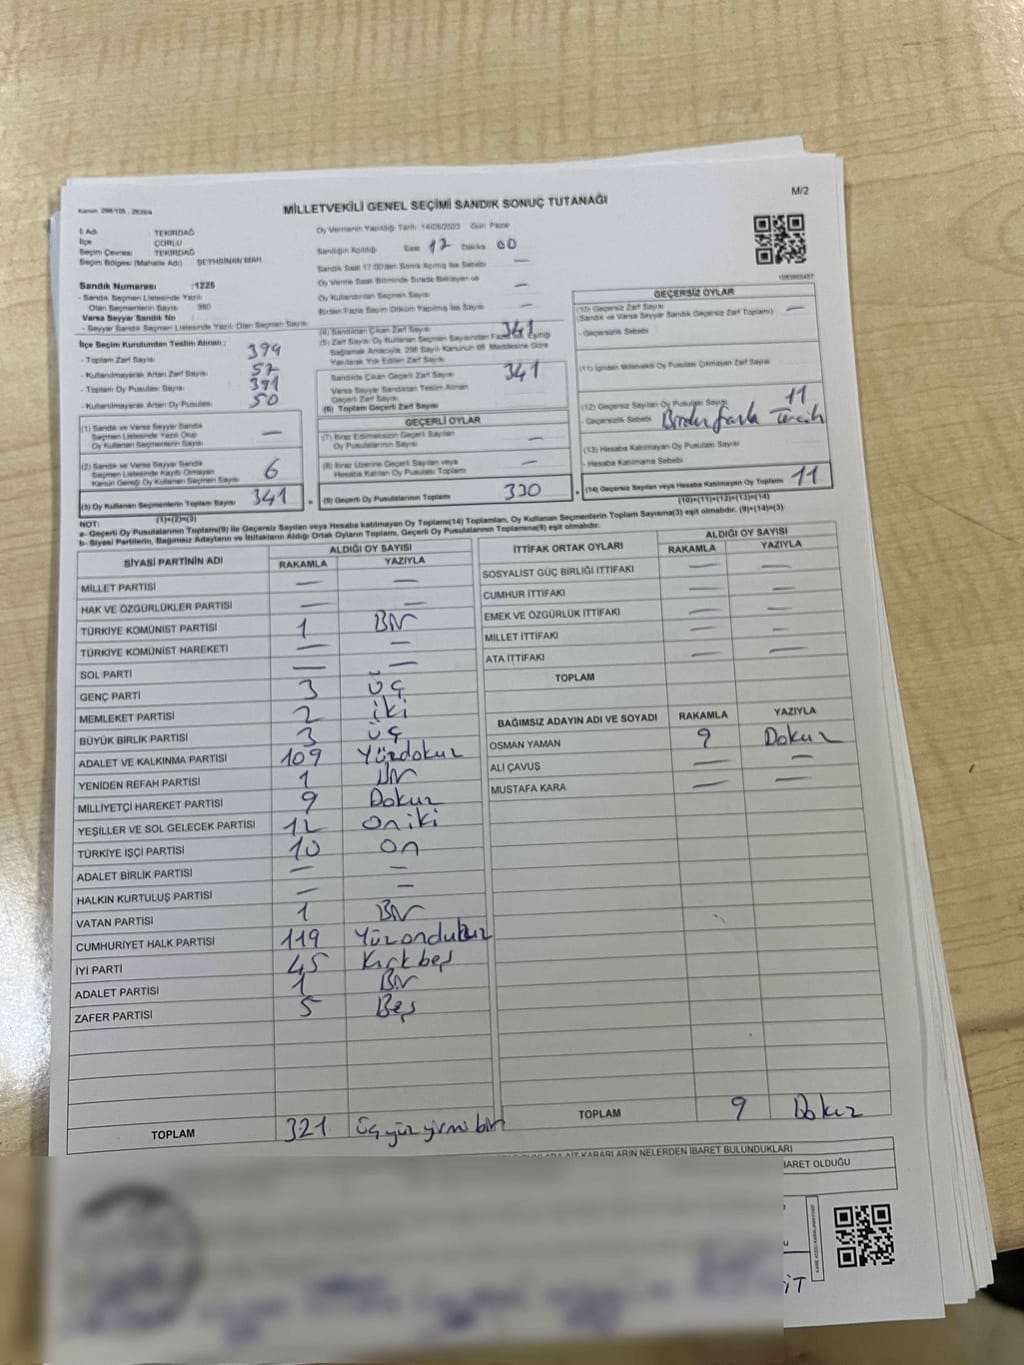 Kanun, 298/105 - 2839/4
MİLLETVEKİLİ GENEL SEÇİMİ SANDIK SONUÇ TUTANAĞI
M/2
İl Adı : TEKİRDAĞ
İlçe : ÇORLU
Seçim Çevresi : TEKİRDAĞ
Seçim Bölgesi (Mahalle Adı) : ŞEYHSİNAN MAH
Sandık Numarası :1226
- Sandık Seçmen Listesinde Yazılı
Olan Seçmenlerin Sayısı : 380
Varsa Seyyar Sandık No :
- Seyyar Sandık Seçmen Listesinde Yazılı Olan Seçmen Sayısı :
İlçe Seçim Kurulundan Teslim Alınan :
- Toplam Zarf Sayısı : 399
- Kullanılmayarak Artan Zarf Sayısı : 57
- Toplam Oy Pusulası Sayısı : 391
- Kullanılmayarak Artan Oy Pusulası : 50
(1) Sandık ve Varsa Seyyar Sandık
Seçmen Listesinde Yazılı Olup
Oy Kullanan Seçmenlerin Sayısı —
(2) Sandık ve Varsa Seyyar Sandık
Seçmen Listesinde Kaydı Olmayan
Kanun Gereği Oy Kullanan Seçmen Sayısı 6
(3) Oy Kullanan Seçmenlerin Toplam Sayısı 341
(1)+(2)=(3)
Oy Vermenin Yapıldığı Tarih: 14/05/2023 Gün: Pazar
Sandığın Açıldığı Saat 17 Dakika 00
Sandık Saat 17:00'den Sonra Açılmış İse Sebebi : —
Oy Verme Saati Bitiminde Sırada Bekleyen ve
Oy Kullandırılan Seçmen Sayısı : —
Birden Fazla Sayım Döküm Yapılmış İse Sayısı : —
(4) Sandıktan Çıkan Zarf Sayısı : 341
(5) Zarf Sayısı Oy Kullanan Seçmen Sayısından Fazla ise, Eşitliği
Sağlamak Amacıyla, 298 Sayılı Kanunun 98. Maddesine Göre
Yakılarak Yok Edilen Zarf Sayısı :
Sandıkta Çıkan Geçerli Zarf Sayısı 341
Varsa Seyyar Sandıktan Teslim Alınan
Geçerli Zarf Sayısı
(6) Toplam Geçerli Zarf Sayısı
GEÇERLİ OYLAR
(7) İtiraz Edilmeksizin Geçerli Sayılan
Oy Pusulalarının Sayısı —
(8) İtiraz Üzerine Geçerli Sayılan veya
Hesaba Katılan Oy Pusulası Toplamı —
= (9) Geçerli Oy Pusulalarının Toplamı 330
GEÇERSİZ OYLAR
(10) Geçersiz Zarf Sayısı
(Sandık ve Varsa Seyyar Sandık Geçersiz Zarf Toplamı) —
- Geçersizlik Sebebi
(11) İçinden Milletvekili Oy Pusulası Çıkmayan Zarf Sayısı
(12) Geçersiz Sayılan Oy Pusulası Sayısı 11
- Geçersizlik Sebebi Birden fazla Tercih
(13) Hesaba Katılmayan Oy Pusulası Sayısı
- Hesaba Katılmama Sebebi
+ (14) Geçersiz Sayılan veya Hesaba Katılmayan Oy Toplamı 11
(10)+(11)+(12)+(13)=(14)
NOT:
a- Geçerli Oy Pusulalarının Toplamı(9) ile Geçersiz Sayılan veya Hesaba katılmayan Oy Toplamı(14) Toplamları, Oy Kullanan Seçmenlerin Toplam Sayısına(3) eşit olmalıdır. (9)+(14)=(3)
b- Siyasi Partilerin, Bağımsız Adayların ve İttifakların Aldığı Ortak Oyların Toplamı, Geçerli Oy Pusulalarının Toplamına(9) eşit olmalıdır.
SİYASİ PARTİNİN ADI ALDIĞI OY SAYISI
RAKAMLA YAZIYLA
MİLLET PARTİSİ — —
HAK VE ÖZGÜRLÜKLER PARTİSİ — —
TÜRKİYE KOMÜNİST PARTİSİ 1 Bir
TÜRKİYE KOMÜNİST HAREKETİ — —
SOL PARTİ — —
GENÇ PARTİ 3 üç
MEMLEKET PARTİSİ 2 iki
BÜYÜK BİRLİK PARTİSİ 3 üç
ADALET VE KALKINMA PARTİSİ 109 Yüzdokuz
YENİDEN REFAH PARTİSİ 1 Bir
MİLLİYETÇİ HAREKET PARTİSİ 9 Dokuz
YEŞİLLER VE SOL GELECEK PARTİSİ 12 oniki
TÜRKİYE İŞÇİ PARTİSİ 10 on
ADALET BİRLİK PARTİSİ — —
HALKIN KURTULUŞ PARTİSİ — —
VATAN PARTİSİ 1 Bir
CUMHURİYET HALK PARTİSİ 119 Yüzondokuz
İYİ PARTİ 45 Kırkbeş
ADALET PARTİSİ 1 Bir
ZAFER PARTİSİ 5 Beş
TOPLAM 321 üçyüzyirmibir
İTTİFAK ORTAK OYLARI ALDIĞI OY SAYISI
RAKAMLA YAZIYLA
SOSYALİST GÜÇ BİRLİĞİ İTTİFAKI — —
CUMHUR İTTİFAKI — —
EMEK VE ÖZGÜRLÜK İTTİFAKI — —
MİLLET İTTİFAKI — —
ATA İTTİFAKI — —
TOPLAM
BAĞIMSIZ ADAYIN ADI VE SOYADI RAKAMLA YAZIYLA
OSMAN YAMAN 9 Dokuz
ALİ ÇAVUŞ — —
MUSTAFA KARA — —
TOPLAM 9 Dokuz
KARARLARIN NELERDEN İBARET BULUNDUKLARI
İBARET OLDUĞU